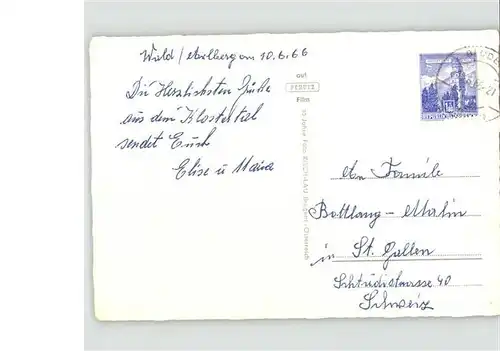 Wald / Arlberg am 10.6.66
Die Herzlichsten Grüße
aus dem Klostertal
sendet Euch
Elise u Maria
auf
PERUTZ
Film
An Familie
Bottlang - Malin
in St. Gallen
Schtudistrasse 40
Schweiz